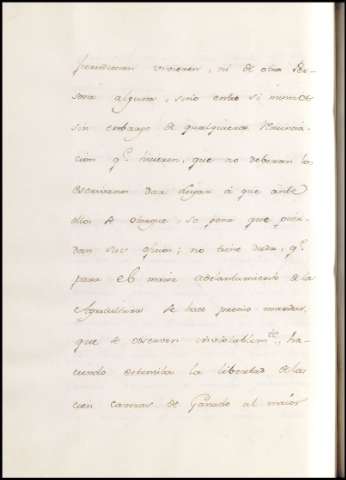 jurisdiccion vivieren, ni de otra Per-
sona alguna, sino entre si mismos
sin embargo de qualquiera Renuncia-
cion q.e hicieren, que no deberan los
escrivanos dar lugar à que ante
ellos se otorgue, so pena que pier-
dan sus oficios; no tiene duda, q.e
para el maior adelantamiento de la
Agricultura se hace preciso mandar,
que se observen inviolablem.te, ha-
ciendo estensiba la libertad de las
cien cavezas de Ganado al maior